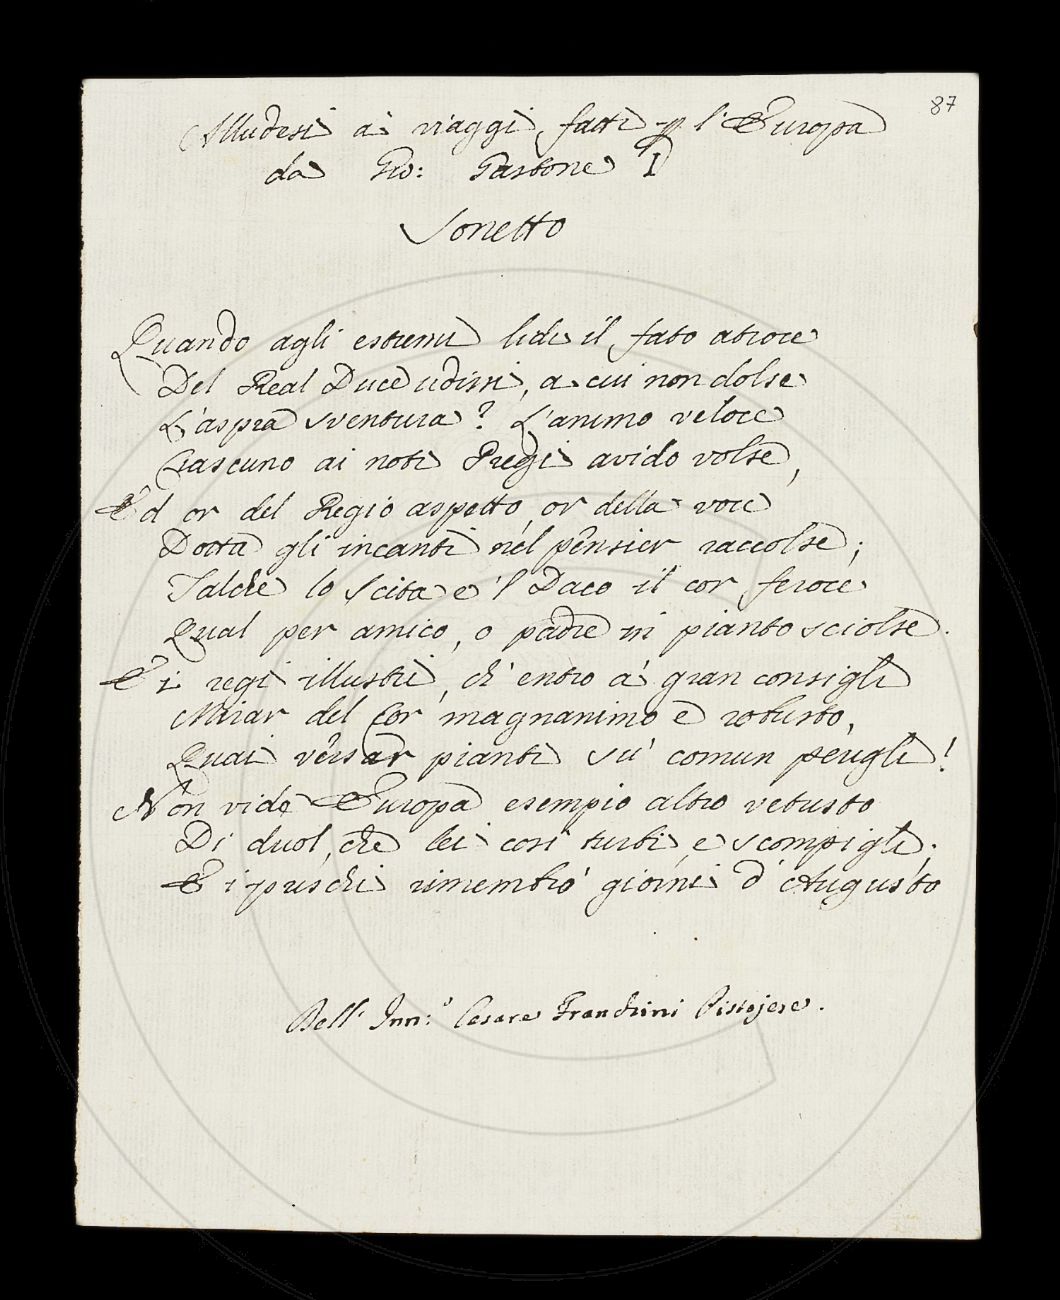 87
Alludesi ai viaggi fatti p l'Europa
da Gio: Gastone I
Sonetto
Quando agli estremi lidi il fato atroce
Del Real Duce udissi, a cui non dolse
L'aspra sventura? L'animo veloce
Ciascuno ai noti Pregi avido volse,
Ed or del Regio aspetto, or della voce
Dotta gli incanti nel pensier raccolse;
Talche lo Scita e 'l Daco il cor feroce
Qual per amico, o padre in pianto sciolse.
E i regi illustri, ch' entro a' gran consigli
Mirar del Cor magnanimo e robusto,
Quai versar pianti su' comun perigli!
Non vide Europa esempio altro vetusto
Di duol, che lei così turbi, e scompigli.
E i prischi rimembrò giorni d' Augusto
Dell' Inn:o Cesare Franchini Pistojese.